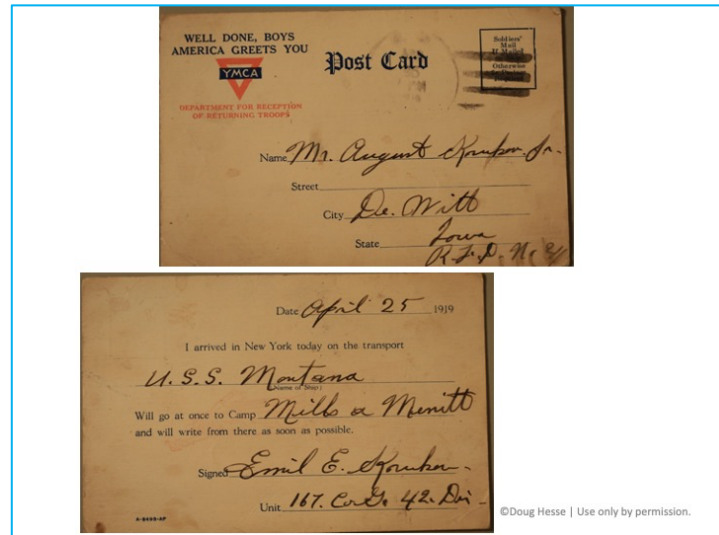 WELL DONE, BOYS
AMERICA GREETS YOU
YMCA
DEPARTMENT FOR RECEPTION
OF RETURNING TROOPS
Post Card
Soldiers'
Mail
If Mailed
Otherwise
Name Mr. August Jr.
Street
City De. Witt
State Iowa
R.F.D. N.
Date April 25 1919
I arrived in New York today on the transport
U.S.S. Montana
(Name of Ship)
Will go at once to Camp Mills or Merritt
and will write from there as soon as possible.
Signed Emil E.
Unit 167. Co. G. 42. Div
©Doug Hesse | Use only by permission.